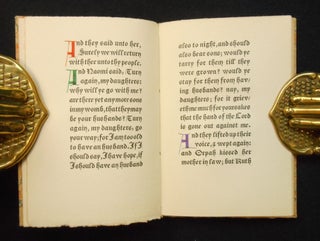 And they said unto her,
Surely we will return
with thee unto thy people.
And Naomi said, Turn
again, my daughters:
why will ye go with me?
are there yet any more sons
in my womb, that they may
be your husbands? Turn
again, my daughters, go
your way; for I am too old
to have an husband. If I
should say, I have hope, if
I should have an husband
also to night, and should
also bear sons; would ye
tarry for them till they
were grown? would ye
stay for them from hav-
ing husbands? nay, my
daughters; for it griev-
eth me much for your sakes
that the hand of the Lord
is gone out against me.
And they lifted up their
voice, & wept again:
and Orpah kissed her
mother in law; but Ruth